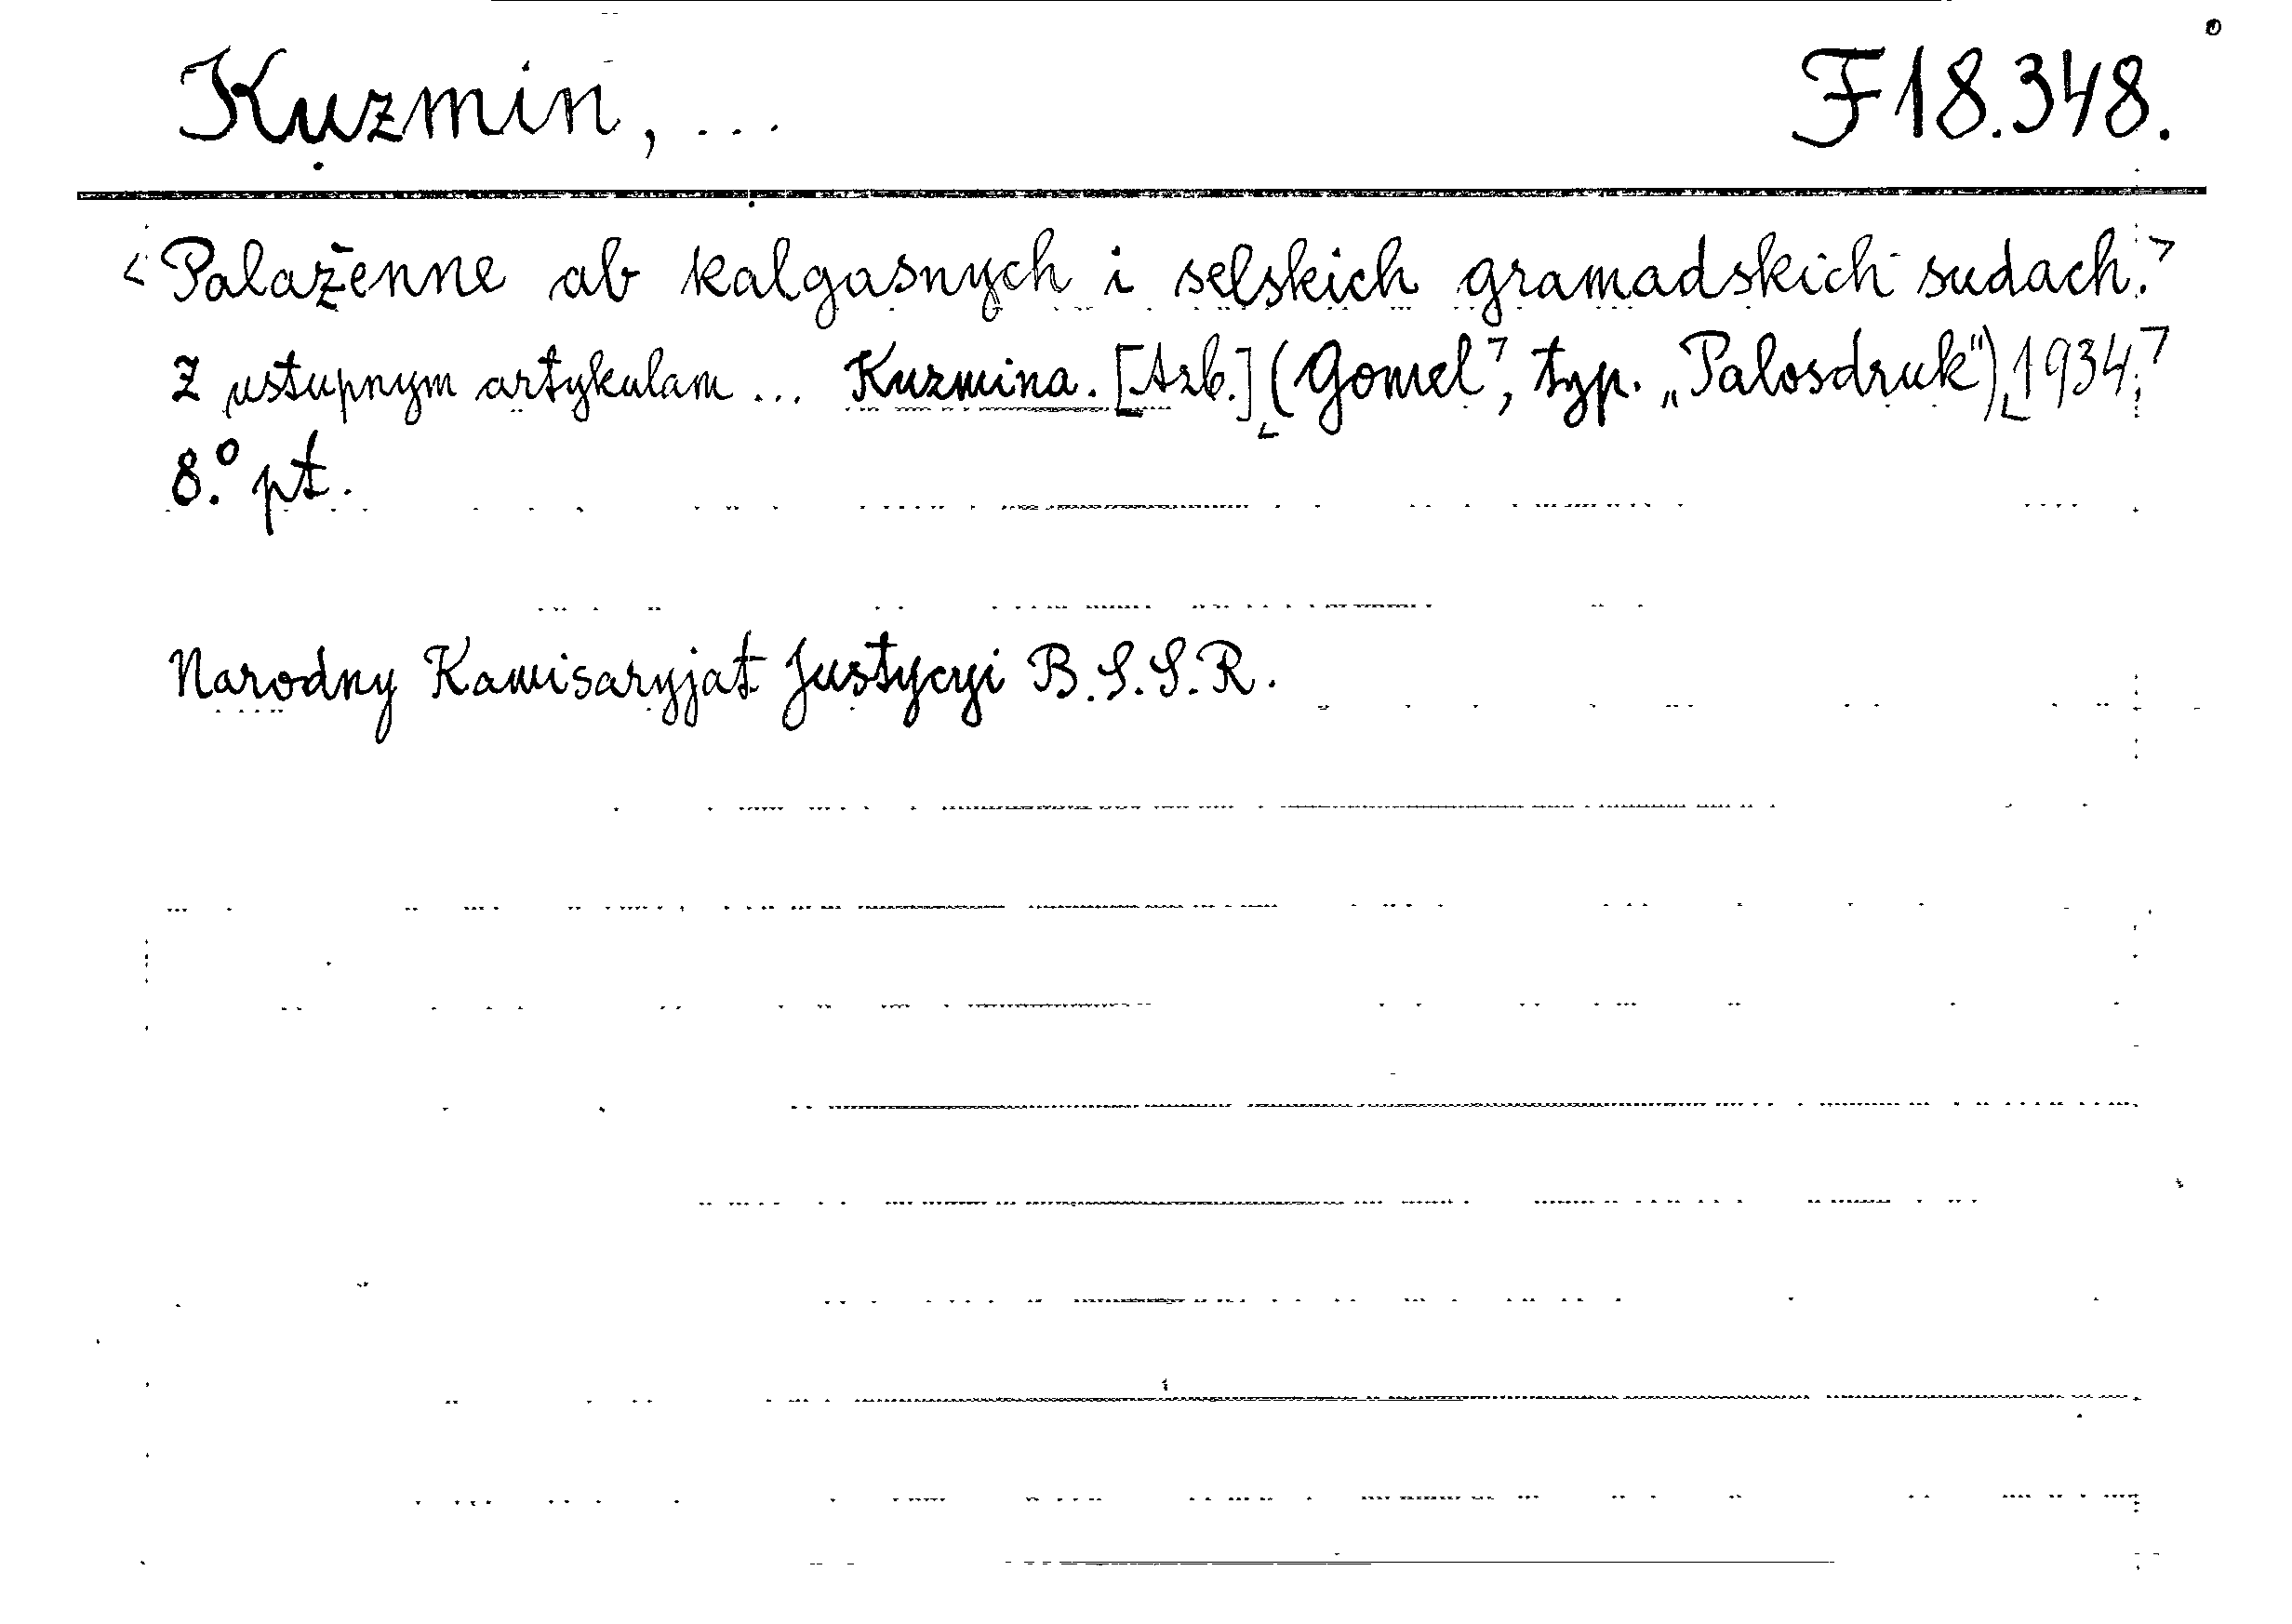 Kuzmin, ... F 18.348.
<Palaženne ab kalgasnych i selskich gramadskich sudach.>
Z ustupnym artykulam ... Kuzmina. [Azb.] (Gomel', typ. „Palesdruk") 1934.
8.° pt.
Narodny Kamisaryjat Justycyi B.S.S.R.